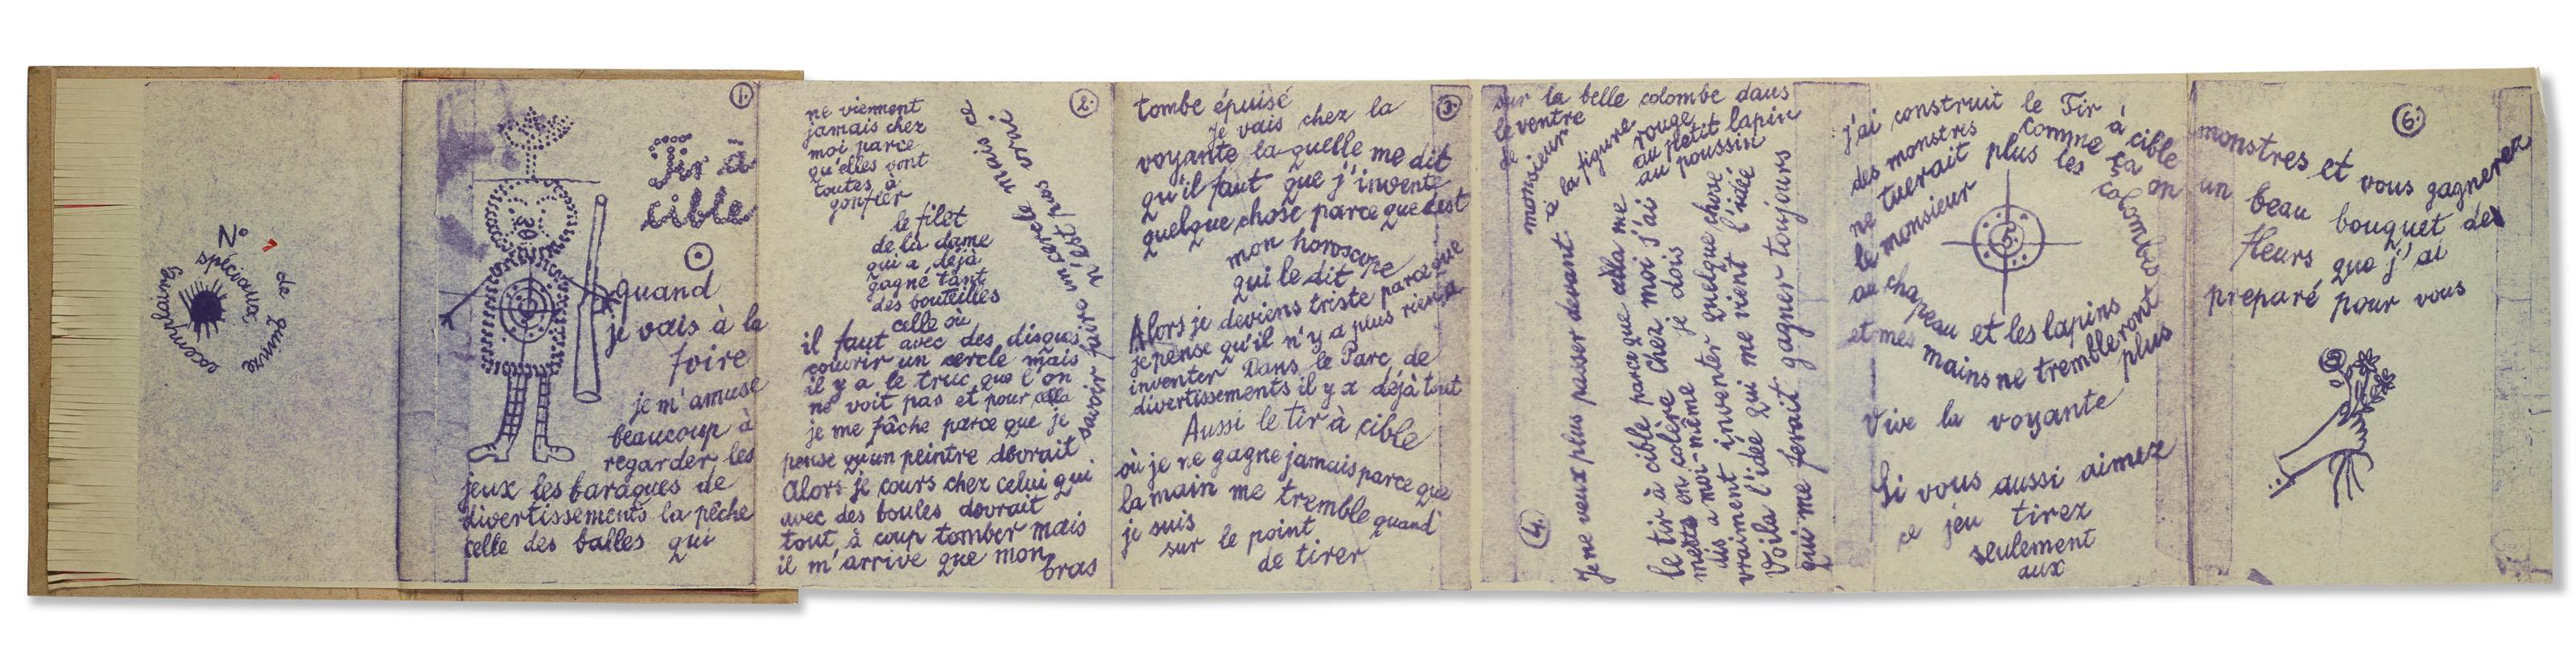 N° 7
spéciaux
de quinze
exemplaires
1.
Tir à
cible
quand
je vais à la
foire
je m'amuse
beaucoup à
regarder les
jeux les baraques de
divertissements la pêche
celle des balles qui
2.
ne viennent
jamais chez
moi parce
qu'elles vont
toutes à
gonfler
le filet
de la dame
qui a déjà
gagné tant
des bouteilles
celle où
il faut avec des disques
couvrir un cercle mais
il y a le truc que l'on
ne voit pas et pour cella
je me fâche parce que je
pense qu'un peintre devrait
savoir faire un cercle mais ce
n'est pas vrai
Alors je cours chez celui qui
avec des boules devrait
tout à coup tomber mais
il m'arrive que mon
bras
3.
tombe épuisé
Je vais chez la
voyante la quelle me dit
qu'il faut que j'invente
quelque chose parce que c'est
mon horoscope
qui le dit
Alors je deviens triste parce que
je pense qu'il n'y a plus rien à
inventer Dans le Parc de
divertissements il y a déjà tout
Aussi le tir à cible
où je ne gagne jamais parce que
la main me tremble quand
je suis
sur le point
de tirer
4.
sur la belle colombe dans
le ventre
de
monsieur
à la figure
rouge
au petit lapin
au poussin
Je ne veux plus passer devant
le tir à cible parce que cella me
mets en colère Chez moi j'ai
dis a moi-même je dois
vraiment inventer quelque chose
Voila l'idée qui me vient l'idée
qui me ferait gagner toujours
j'ai construit le Tir à cible
des monstres comme ça on
ne tuerait plus les colombes
le monsieur
au chapeau et les lapins
et mes mains ne trembleront
plus
Vive la voyante
Si vous aussi aimez
ce jeu tirez
seulement
aux
6.
monstres et vous gagnerez
un beau bouquet des
fleurs que j'ai
preparé pour vous